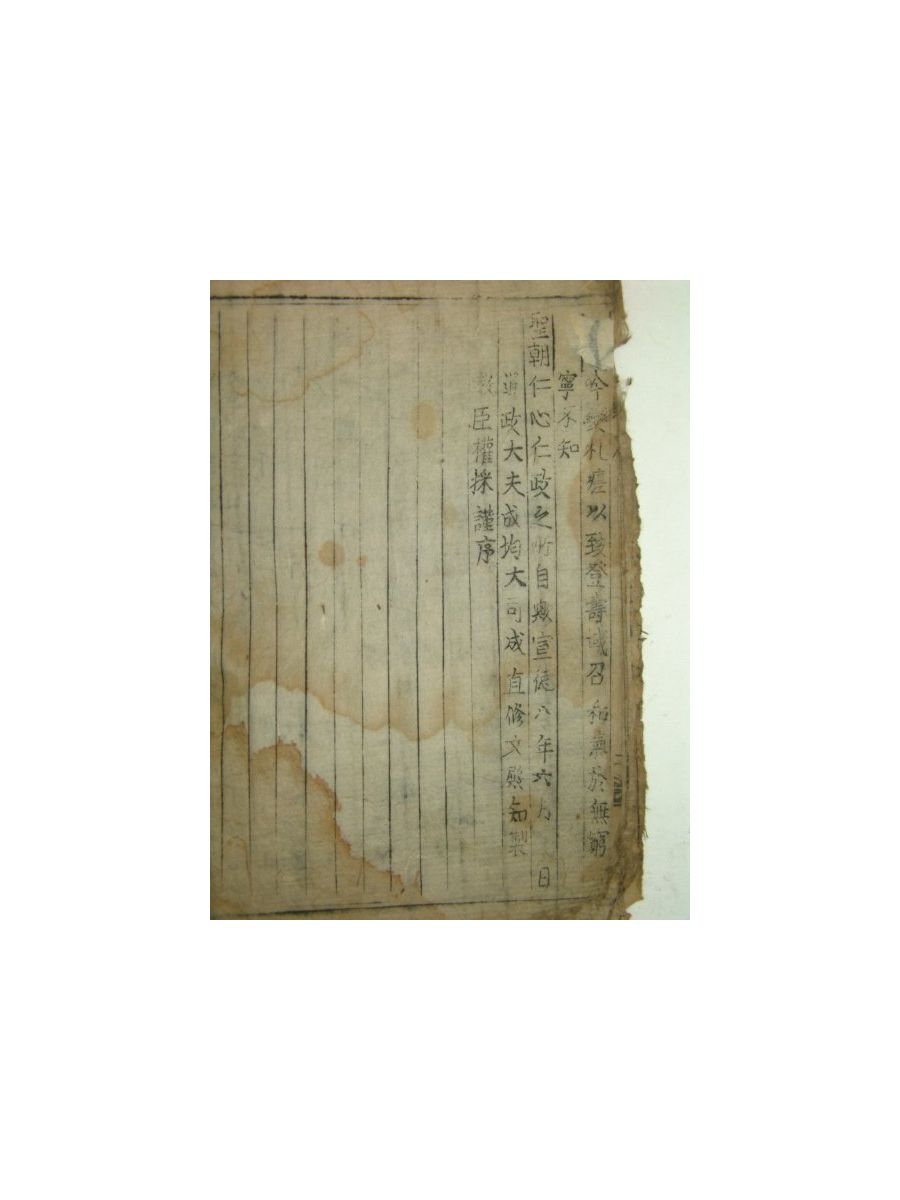 吟變札瘥以致登壽域召和氣於無窮
寧不知
聖朝仁心仁政之所自歟宣德八年六月 日
通政大夫成均大司成直修文殿知製
教臣權採謹序